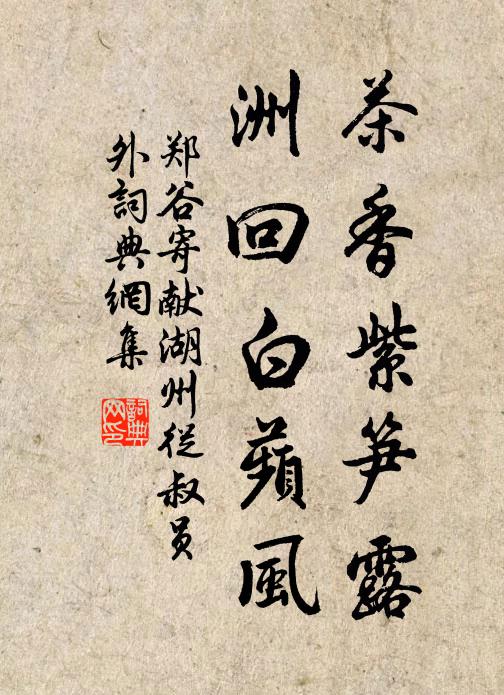 茶香紫笋露
洲回白蘋風
郑谷寄献湖州從叔员
外詞典網集
詞典
网印